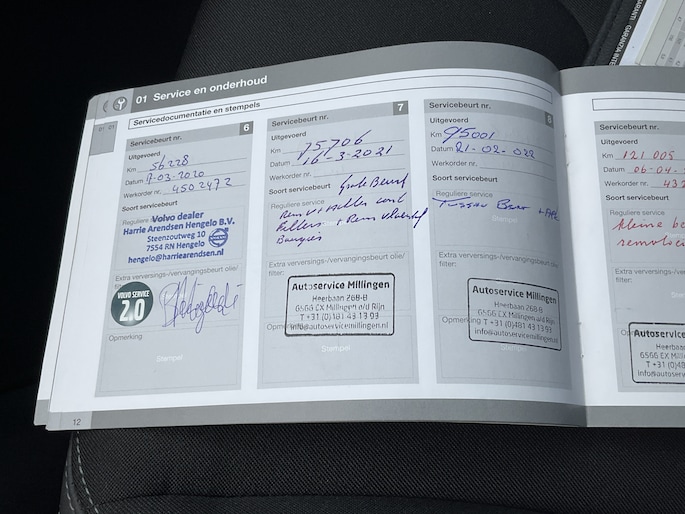 01 Service en onderhoud
Servicedocumentatie en stempels
Servicebeurt nr. 6
Uitgevoerd
Km 56228
Datum 17-03-2020
Werkorder nr. 4502472
Soort servicebeurt
Reguliere
Volvo dealer
Harrie Arendsen Hengelo B.V.
Steenzoutweg 10
7554 RN Hengelo
hengelo@harriearendsen.nl
Extra verversings-/vervangingsbeurt olie/
filter:
VOLVO SERVICE
2.0
Opmerking
Stempel
12
Servicebeurt nr. 7
Uitgevoerd
Km 75706
Datum 16-3-2021
Werkorder nr.
Soort servicebeurt Grote Beurt
Reguliere service
Filters + Rem vloeistof
Bougies
Extra verversings-/vervangingsbeurt olie/
filter:
Autoservice Millingen
Heerbaan 268-B
6566 EX Millingen a/d Rijn
T +31 (0)481 43 13 93
info@autoservicemillingen.nl
Stempel
Servicebeurt nr. 8
Uitgevoerd
Km 95001
Datum 21-02-022
Werkorder nr.
Soort servicebeurt
Reguliere service
Tussen Beurt + APK
Stempel
Extra verversings-/vervangingsbeurt olie/
filter:
Autoservice Millingen
Heerbaan 268-B
6566 EX Millingen a/d Rijn
T +31 (0)481 43 13 93
info@autoservicemillingen.nl
Stempel
Servicebeurt nr.
Uitgevoerd
Km 121 005
Datum 06-04-
Werkorder nr. 432
Soort servicebeurt
Reguliere service
kleine be
Extra verversings-/ver
filter:
Autoservice
Heerbaa
6566 EX Milli
T +31 (0)48
info@autoserv